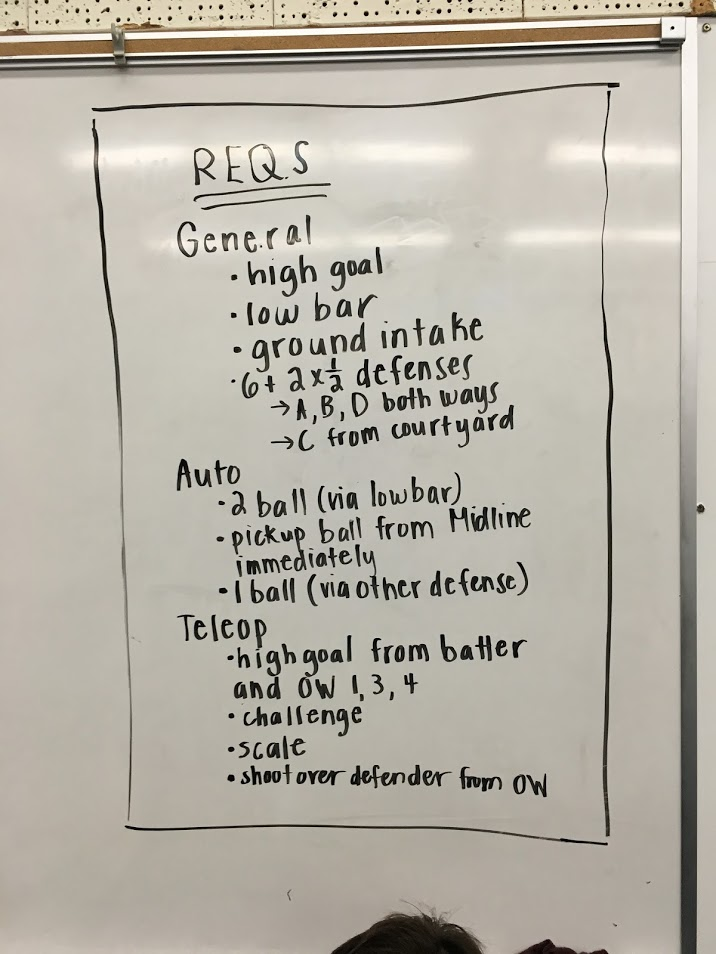 REQS
General
• high goal
• low bar
• ground intake
• 6 + 2 x 1/2 defenses
→ A, B, D both ways
→ C from courtyard
Auto
• 2 ball (via lowbar)
• pickup ball from Midline
immediately
• 1 ball (via other defense)
Teleop
• high goal from batter
and OW 1, 3, 4
• challenge
• scale
• shoot over defender from OW